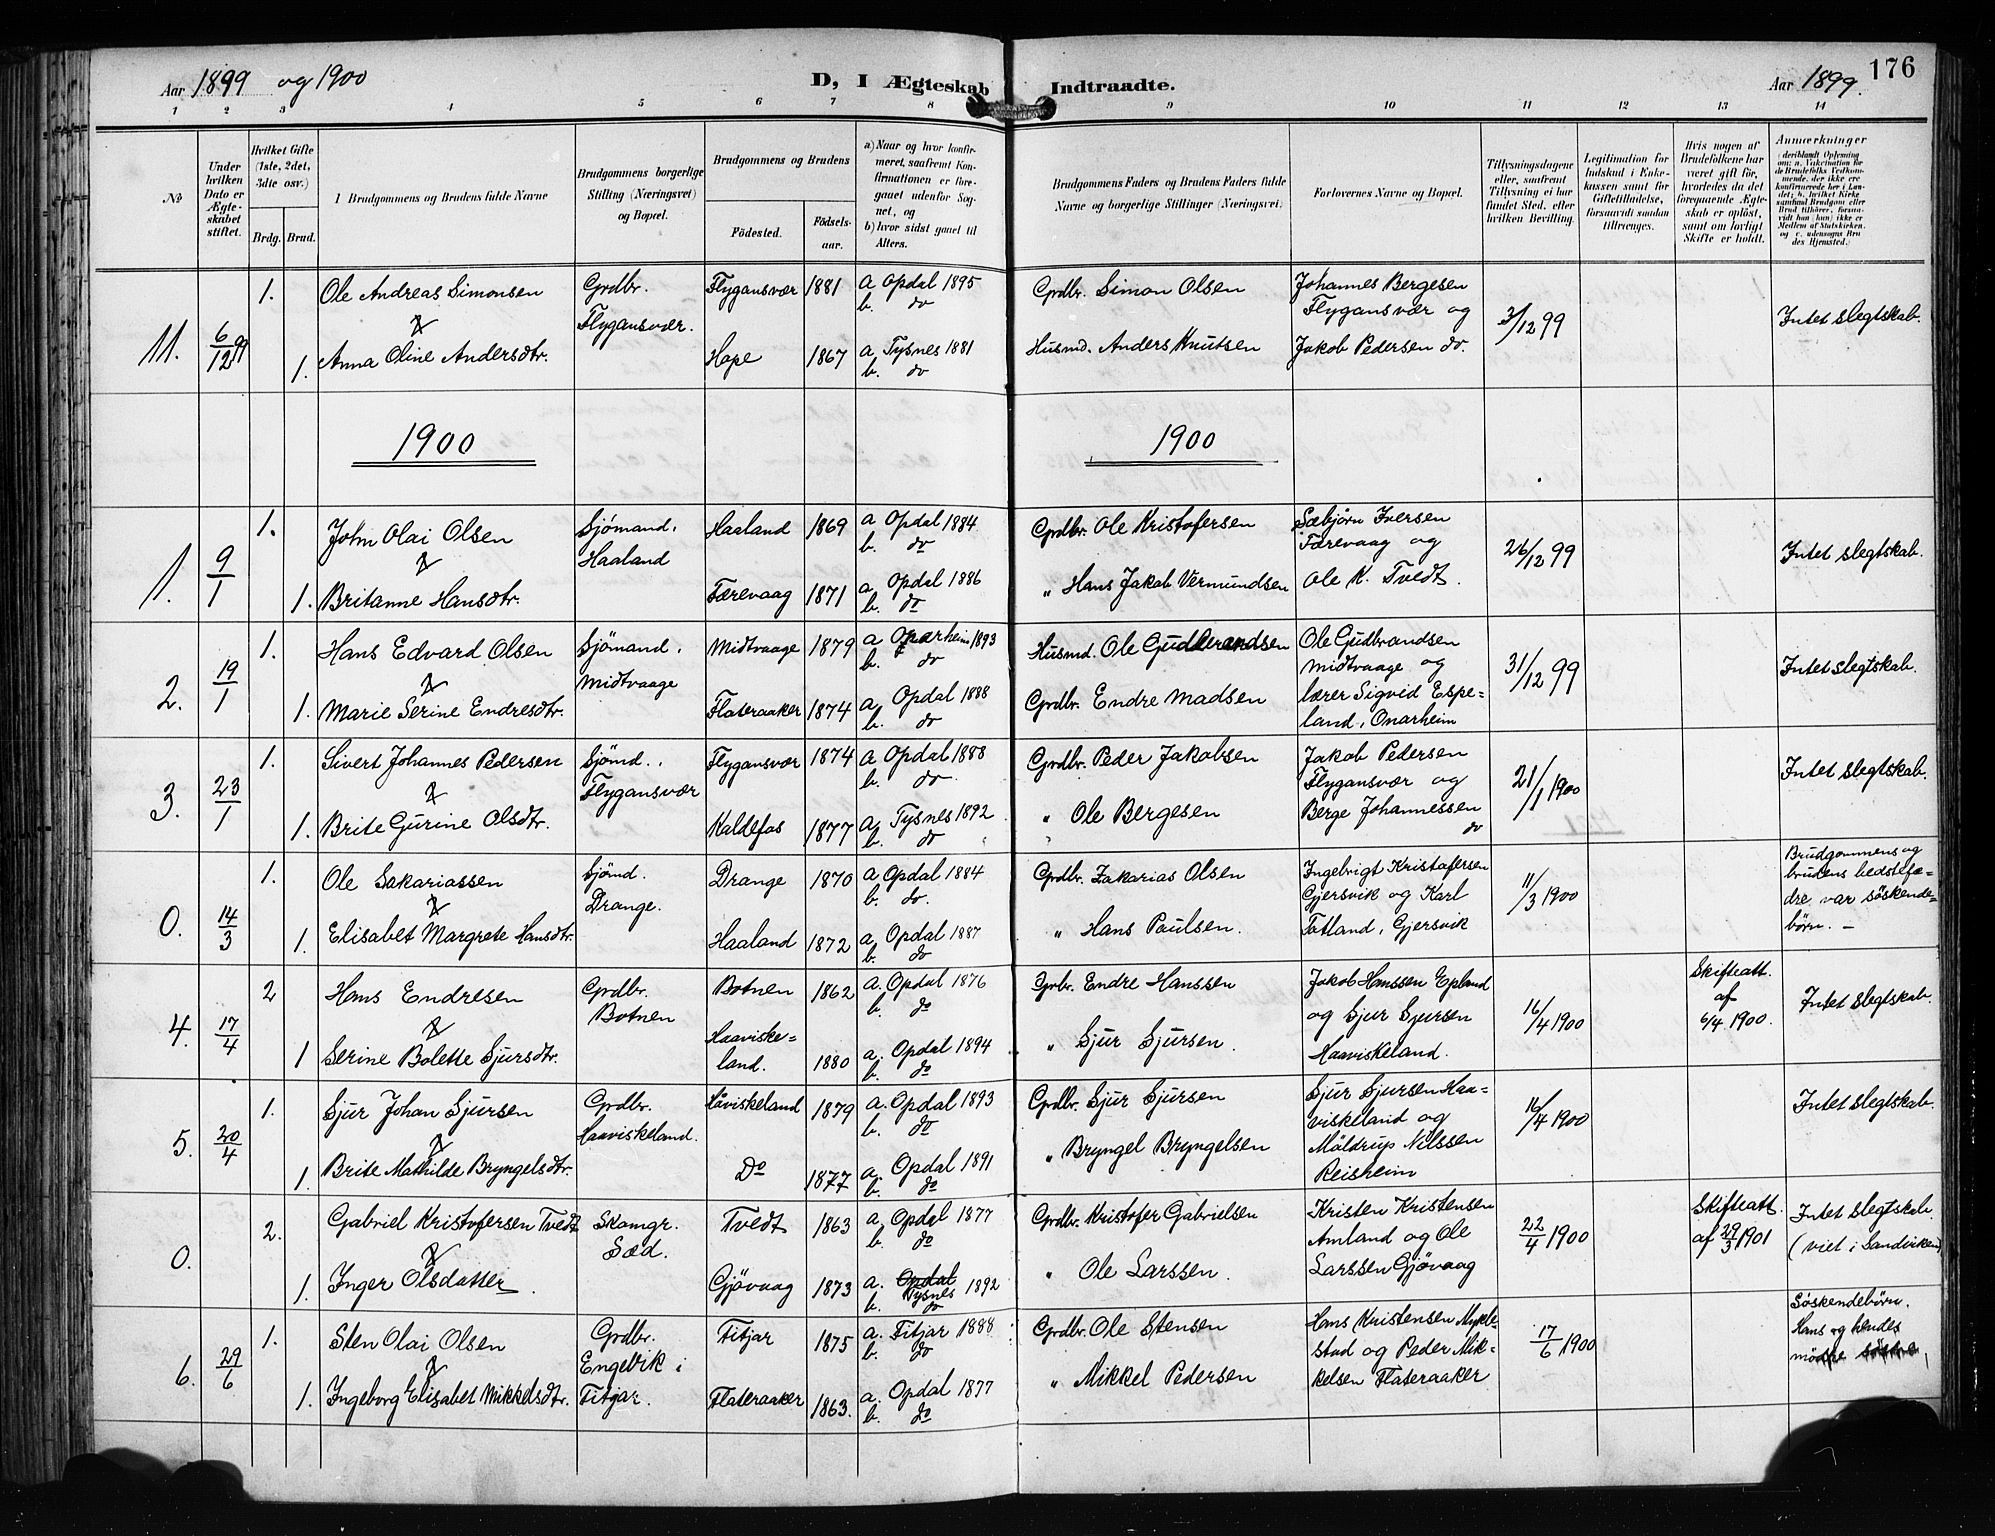 Aar 1899 og 1900
D, I Ægteskab Indtraadte.
Aar 1899.
176
1 2 3 4 5 6 7 8 9 10 11 12 13 14
No
Under hvilken Dato er Ægteskabet stiftet.
Hvilket Gifte (1ste, 2det, 3die osv.)
Brdg. Brud.
I Brudgommens og Brudens fulde Navne
Brudgommens borgerlige Stilling (Næringsvei) og Bopæl.
Brudgommens og Brudens
Fødested. Fødselsaar.
a) Naar og hvor konfirmeret, saafremt Konfirmationen er foregaaet udenfor Sognet, og
b) hvor sidst gaaet til Alters.
Brudgommens Faders og Brudens Faders fulde Navne og borgerlige Stillinger (Næringsvei)
Forlovernes Navne og Bopæl.
Tillysningsdagene eller, saafremt Tillysning ei har fundet Sted, efter hvilken Bevilling.
Legitimation for Indskud i Enkekassen samt for Giftetilladelse, forsaavidt saadan tiltrænges.
Hvis nogen af Brudefolkene har været gift før, hvorledes da det foregaaende Ægteskab er opløst, samt om lovligt Skifte er holdt.
Anmærkninger
11. 6/12 99 1. Ole Andreas Simonsen Grdbr. Flygansvær. Flygansvær 1881 a Opdal 1895 b. do Grdbr. Simon Olsen Johannes Bergesen Flygansvær og 3/12 99 Intet slegtskab.
1. Anna Oline Andersdtr. Hope 1867 a Tysnes 1881 b. do Husmd. Anders Knutsen Jakob Pedersen do.
1900 1900
1. 9/1 1. John Olai Olsen Sjömand, Haaland Haaland 1869 a Opdal 1884 b. do Grdbr. Ole Kristofersen Sæbjörn Iversen Færevaag og 26/12 99 Intet slegtskab.
1. Britanne Hansdtr. Færevaag 1871 a Opdal 1886 b. do " Hans Jakob Vermundsen Ole K. Tvedt.
2. 19/1 1. Hans Edvard Olsen Sjömand, Midtvaage Midtvaage 1879 a Onarheim 1893 b. do Husmd. Ole Gudbrandsen Ole Gudbrandsen Midtvaage og 31/12 99 Intet slegtskab.
1. Marie Serine Endresdtr. Flateraaker 1874 a Opdal 1888 b. do Grdbr. Endre Madsen lærer Sigvid Espeland, Onarheim
3. 23/1 1. Sivert Johannes Pedersen Sjömd., Flygansvær Flygansvær 1874 a Opdal 1888 b. do. Grdbr. Peder Jakobsen Jakob Pedersen Flygansvær og 21/1 1900 Intet slegtskab.
1. Brite Gurine Olsdtr. Kaldefos 1877 a Tysnes 1892 b. do " Ole Bergesen Berge Johannessen do
0. 14/3 1. Ole Sakariassen Sjömd. Drange. Drange 1870 a Opdal 1884 b. do. Grdbr. Zakarias Olsen Ingebrigt Kristofersen Gjersvik og Karl 11/3 1900 Brudgommens og brudens bedstefædre var söskendebörn. -
1. Elisabet Margrete Hansdtr. Haaland 1872 a Opdal 1887 b. do " Hans Paulsen. Totland, Gjersvik
4. 17/4 2 Hans Endresen Grdbr. Botnen Botnen 1862 a. Opdal 1876 b. do Grbr. Endre Hanssen Jakob Hanssen Epland og Sjur Sjursen 16/4 1900 Skifteatt. af 6/4 1900. Intet slegtskab.
1 Serine Bolette Sjursdtr. Haaviskeland. 1880 a. Opdal 1894 b. do " Sjur Sjursen. Haaviskeland.
5. 20/4 1. Sjur Johan Sjursen Grdbr. Haaviskeland. Håviskeland 1879 a. Opdal 1893 b. do Grdbr. Sjur Sjursen Sjur Sjursen Haaviskeland og 16/4 1900 Intet slegtskab.
1. Brite Mathilde Bryngelsdtr. Do 1877 a. Opdal 1891 b. do " Bryngel Bryngelsen Måldrup Nilssen Reisheim
0. 2. Gabriel Kristofersen Tvedt Skomgr. Sæd. Tvedt 1863 a. Opdal 1877 b. do Grdbr. Kristofer Gabrielsen Kristen Kristensen Amland og Ole 22/4 1900 Skifteatt. af 29/3 1901 Intet slegtskab. (viet i Sandviken)
1. Inger Olsdatter Gjövaag 1873 a. Opdal Tysnes 1892 b. do " Ole Larssen. Larssen Gjövaag
6. 29/6 1. Sten Olai Olsen Grdbr. Engevik i Fitjar. Fitjar 1875 a. Fitjar 1888 b. do Grdbr. Ole Stensen Hans Kristensen Myklestad og Peder Mik- 17/6 1900 Söskendebörn. Hans og hendes mödre söstre
1. Ingeborg Elisabet Mikkelsdtr. Flateraaker 1863. a. Opdal 1877 b. do " Mikkel Pedersen kelsen Flateraaker